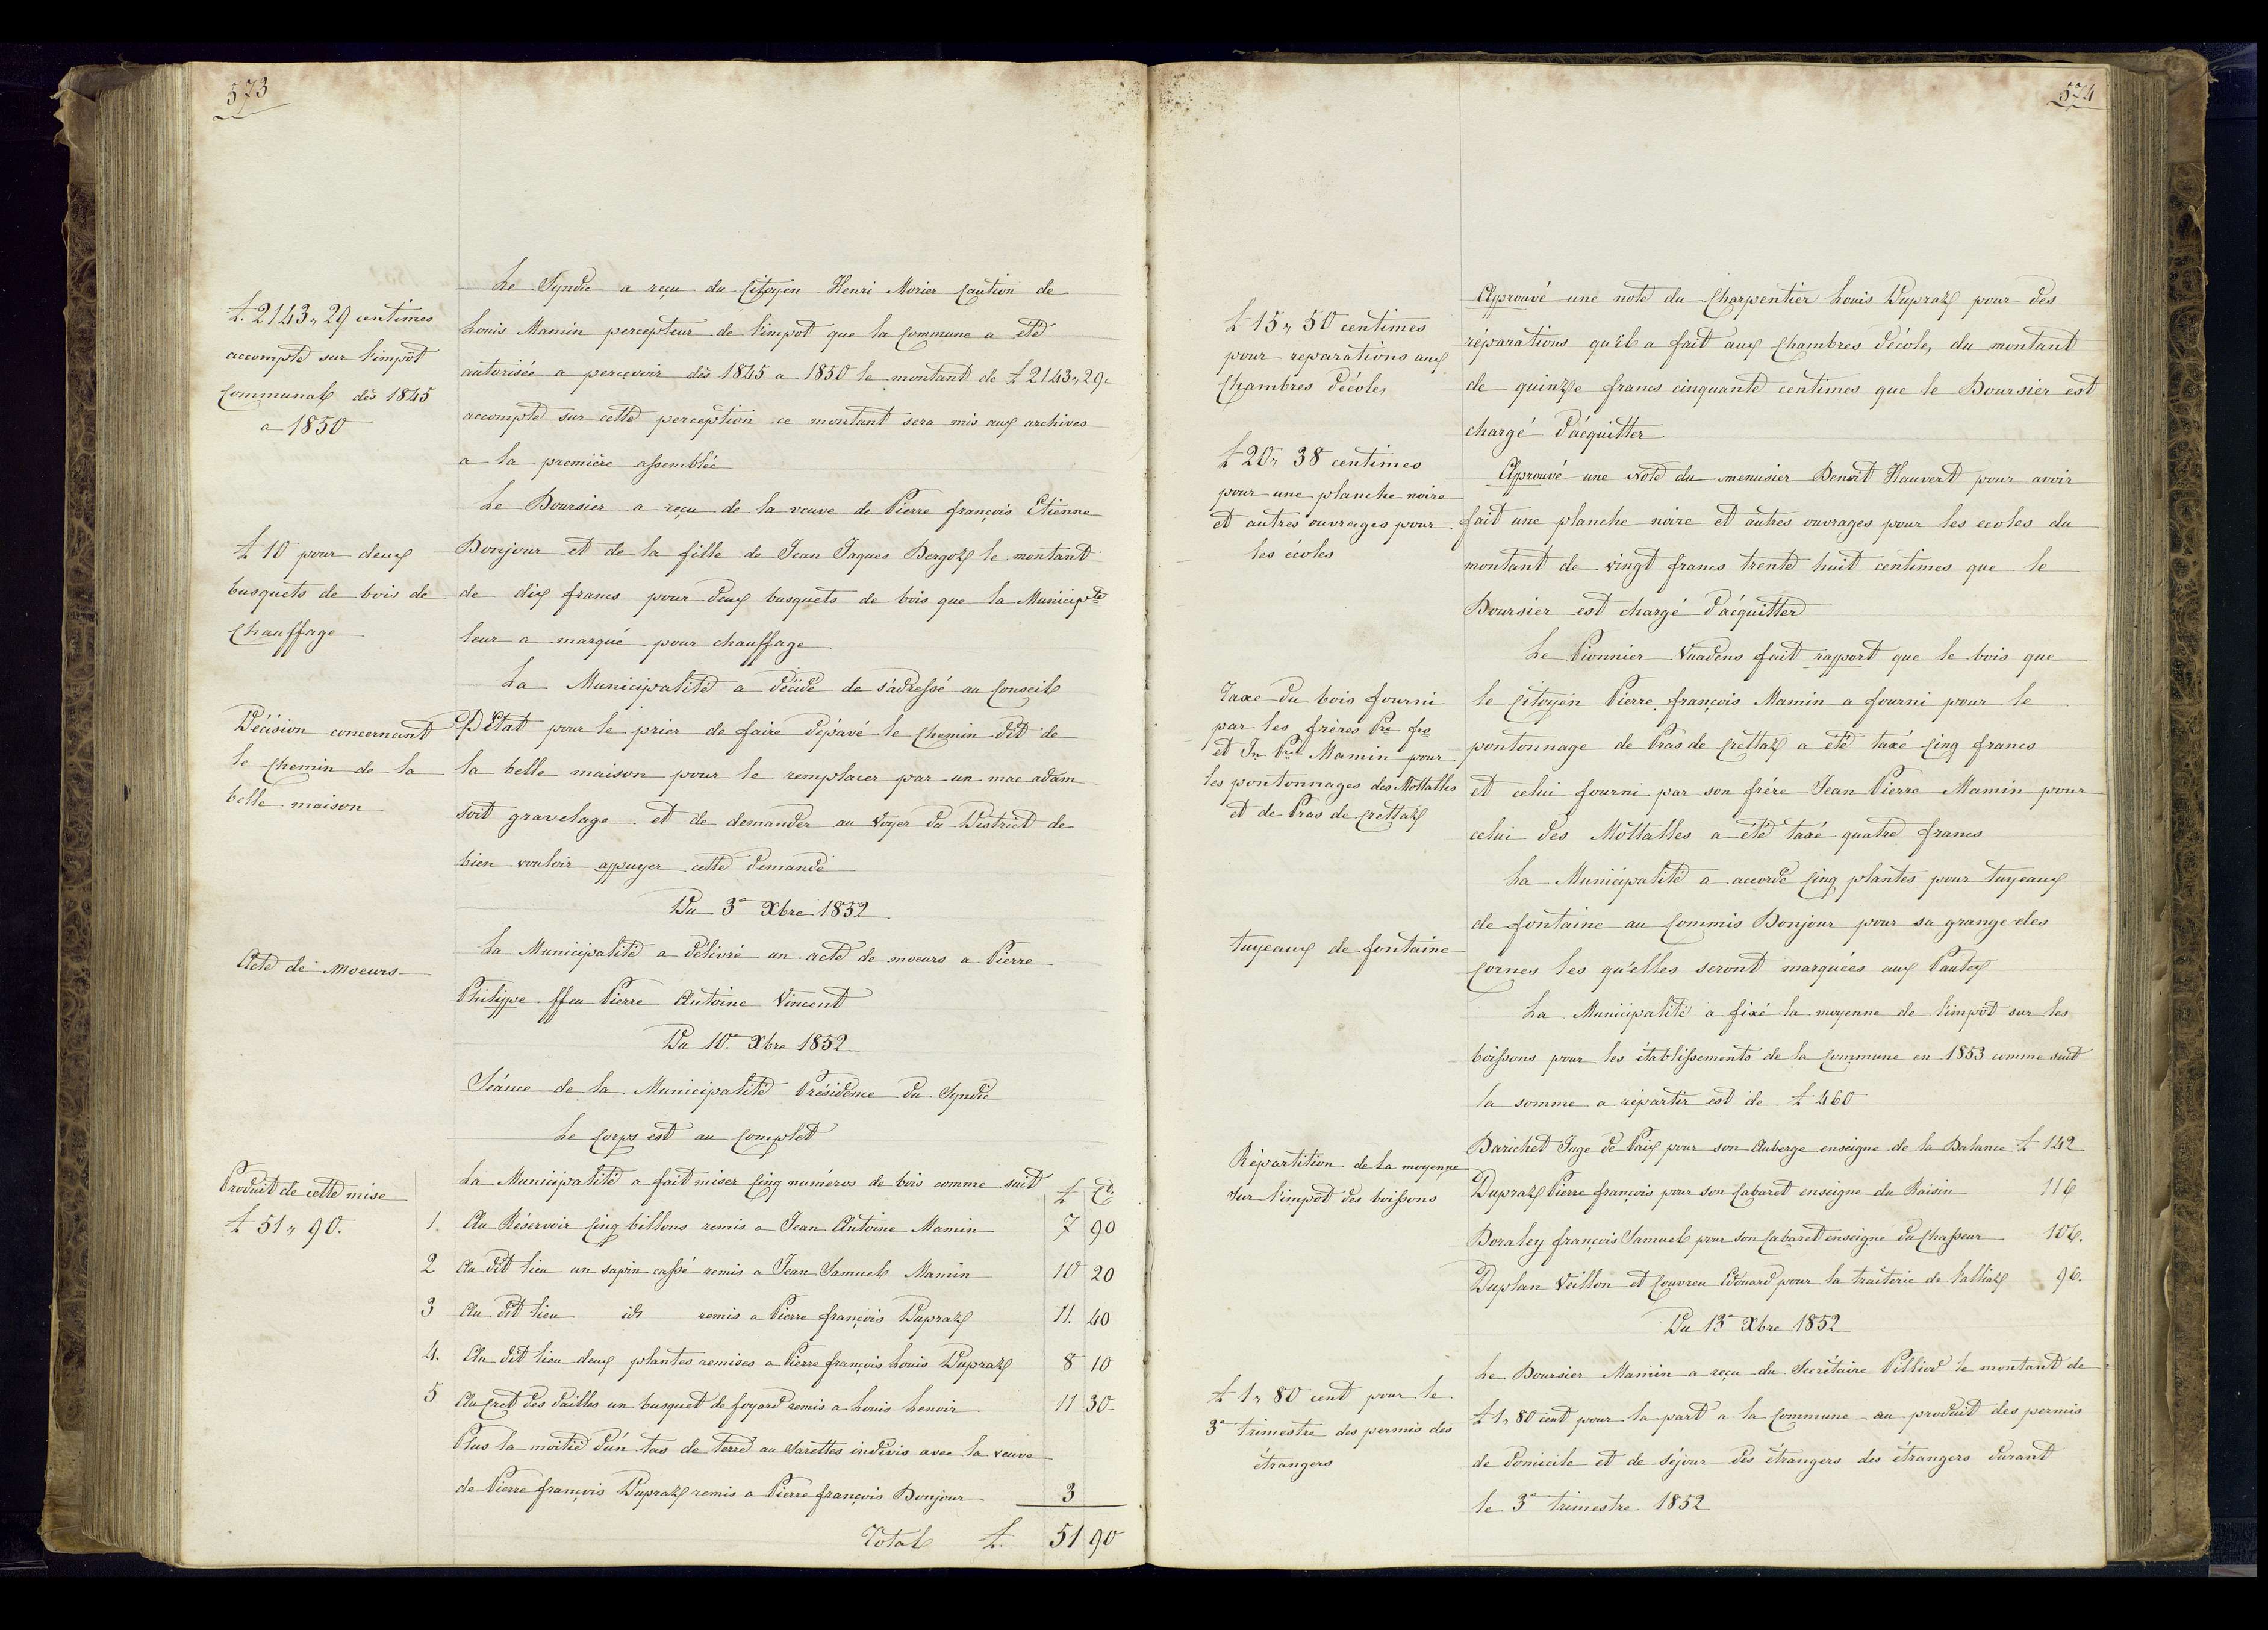 573
Le Syndic a reçu du Citoyen Henri Morier Caution de
£. 2143,, 29 centimes
accompte sur l'impôt
Communal dès 1845
a 1850
Louis Mamin percepteur de l'impot que la Commune a été
autorisée a percevoir dès 1845 a 1850 le montant de £ 2143,, 29c
accompte sur cette perception ce montant sera mis aux archives
a la première assemblée
Le Boursier a reçu de la veuve de Pierre françois Etienne
£ 10 pour deux
busquets de bois de
Chauffage
Bonjour et de la fille de Jean Jaques Bergoz le montant
de dix francs pour deux busquets de bois que la Municipte
leur a marqué pour chauffage
La Municipalité a décidé de s'adressé au Conseil
Décision concernant
le Chemin de la
belle maison
D'Etat pour le prier de faire dépavé le Chemin dit de
la belle maison pour le remplacer par un mac adam
soit gravelage et de demander au Voyer du District de
bien vouloir appuyer cette demande
Du 3e Xbre 1852
Acte de moeurs
La Municipalité a délivré un acte de moeurs a Pierre
Philippe ffeu Pierre Antoine Vincent
Du 10e. Xbre 1852
Séance de la Municipalité Présidence du Syndic
Le Corps est au Complet
Produit de cette mise
£ 51,, 90.
La Municipalité a fait miser Cinq numéros de bois comme suit £ Ct.
1. Au Réservoir Cinq billons remis a Jean Antoine Mamin 7 90
2 Au dit lieu un sapin cassé remis a Jean Samuel Mamin 10 20
3 Au dit lieu id remis a Pierre françois Dupraz 11. 40
4. Au dit lieu deux plantes remises a Pierre françois Louis Dupraz 8 10
5 Au Cret des dailles un busquet de foyard remis a Louis Lenoir 11 30
Plus la moitié d'un tas de terre au indivis avec la veuve
de Pierre françois Dupraz remis a Pierre françois Bonjour 3
Total £. 51 90
574
£ 15,, 50 centimes
pour reparations aux
Chambres d'école,
Approuvé une note du Charpentier Louis Dupraz pour des
réparations qu'il a fait aux Chambres d'école, du montant
de quinze francs cinquante centimes que le Boursier est
chargé d'acquitter
£ 20,, 38 centimes
pour une planche noire
et autres ouvrages pour
les écoles
Approuvé une Note du menusier Benoit Hauvert pour avoir
fait une planche noire et autres ouvrages pour les ecoles du
montant de vingt francs trente huit centimes que le
Boursier est chargé d'acquitter
Le Pionnier Vuadens fait rapport que le bois que
Taxe du bois fourni
par les frères Pre fcs
et Jn Pre Mamin pour
les pontonnages des Mottalles
et de Pras de Crettaz
le Citoyen Pierre françois Mamin a fourni pour le
pontonnage de Pras de Crettaz a été taxé Cinq francs
et celui fourni par son frère Jean Pierre Mamin pour
celui des Mottalles a été taxé quatre francs
La Municipalité a accordé Cinq plantes pour tuyeaux
tuyeaux de fontaine
de fontaine au Commis Bonjour pour sa grange des
Cornes les qu'elles seront marquées aux Pautex
La Municipalité a fixé la moyenne de l'impôt sur les
boissons pour les établissements de la Commune en 1853 comme suit
la somme a répartir est de £ 460
Répartition de la moyenne
sur l'impôt des boissons
Barichet Juge de Paix pour son Auberge enseigne de la Balance £ 142
Dupraz Pierre françois pour son Cabaret enseigne du Raisin 116
Boraley françois Samuel pour son Cabaret enseigne du Chasseur 106.
Duplan Veillon et Couvreu Edouard pour la traiterie de Lalliaz 96.
Du 13e Xbre 1852
£ 1,, 80 cent pour le
3e trimestre des permis des
étrangers
Le Boursier Mamin a reçu du Secrétaire Pilliod le montant de
£ 1,, 80 cent pour la part a la Commune au produit des permis
de domicile et de séjour des étrangers des étrangers durant
le 3e trimestre 1852